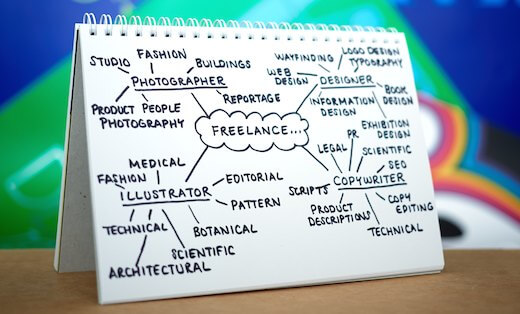 FREELANCE...
PHOTOGRAPHER
STUDIO
FASHION
BUILDINGS
REPORTAGE
PEOPLE
PRODUCT
PHOTOGRAPHY
DESIGNER
WAYFINDING
LOGO DESIGN
TYPOGRAPHY
WEB
DESIGN
BOOK
DESIGN
INFORMATION
DESIGN
EXHIBITION
DESIGN
ILLUSTRATOR
MEDICAL
FASHION
EDITORIAL
PATTERN
BOTANICAL
SCIENTIFIC
TECHNICAL
ARCHITECTURAL
COPYWRITER
PR
LEGAL
SCIENTIFIC
SEO
SCRIPTS
COPY
EDITING
PRODUCT
DESCRIPTIONS
TECHNICAL